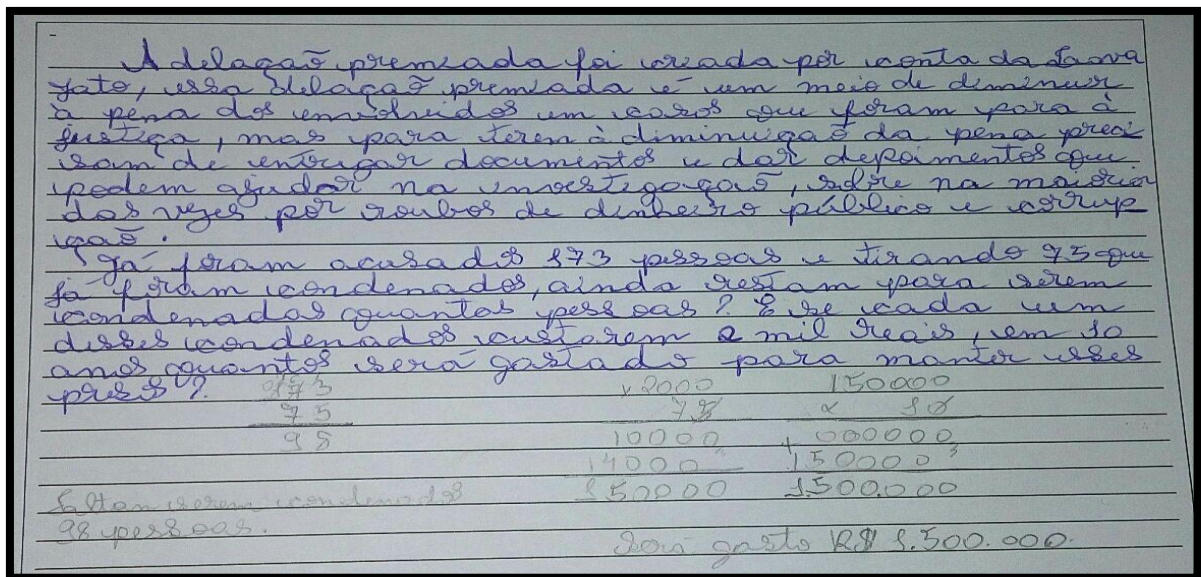 A delação premiada foi criada por conta da Lava
Jato, essa delação premiada é um meio de diminuir
à pena dos envolvidos em casos que foram para à
justiça, mas para terem à diminuição da pena preci
sam de entregar documentos e dar depoimentos que
podem ajudar na investigação, sobre na maioria
das vezes por roubos de dinheiro público e corrup
ção.
Já foram acusados 173 pessoas e tirando 75 que
já foram condenados, ainda restam para serem
condenadas quantas pessoas? E se cada um
desses condenados custarem 2 mil reais, em 10
anos quantos será gastado para manter esses
presos?
173
75
98
x2000
75
10000
14000
150000
150000
x 10
+ 000000
150000
1.500.000
Faltam serem condenados
98 pessoas.
Será gasto R$ 1.500.000.